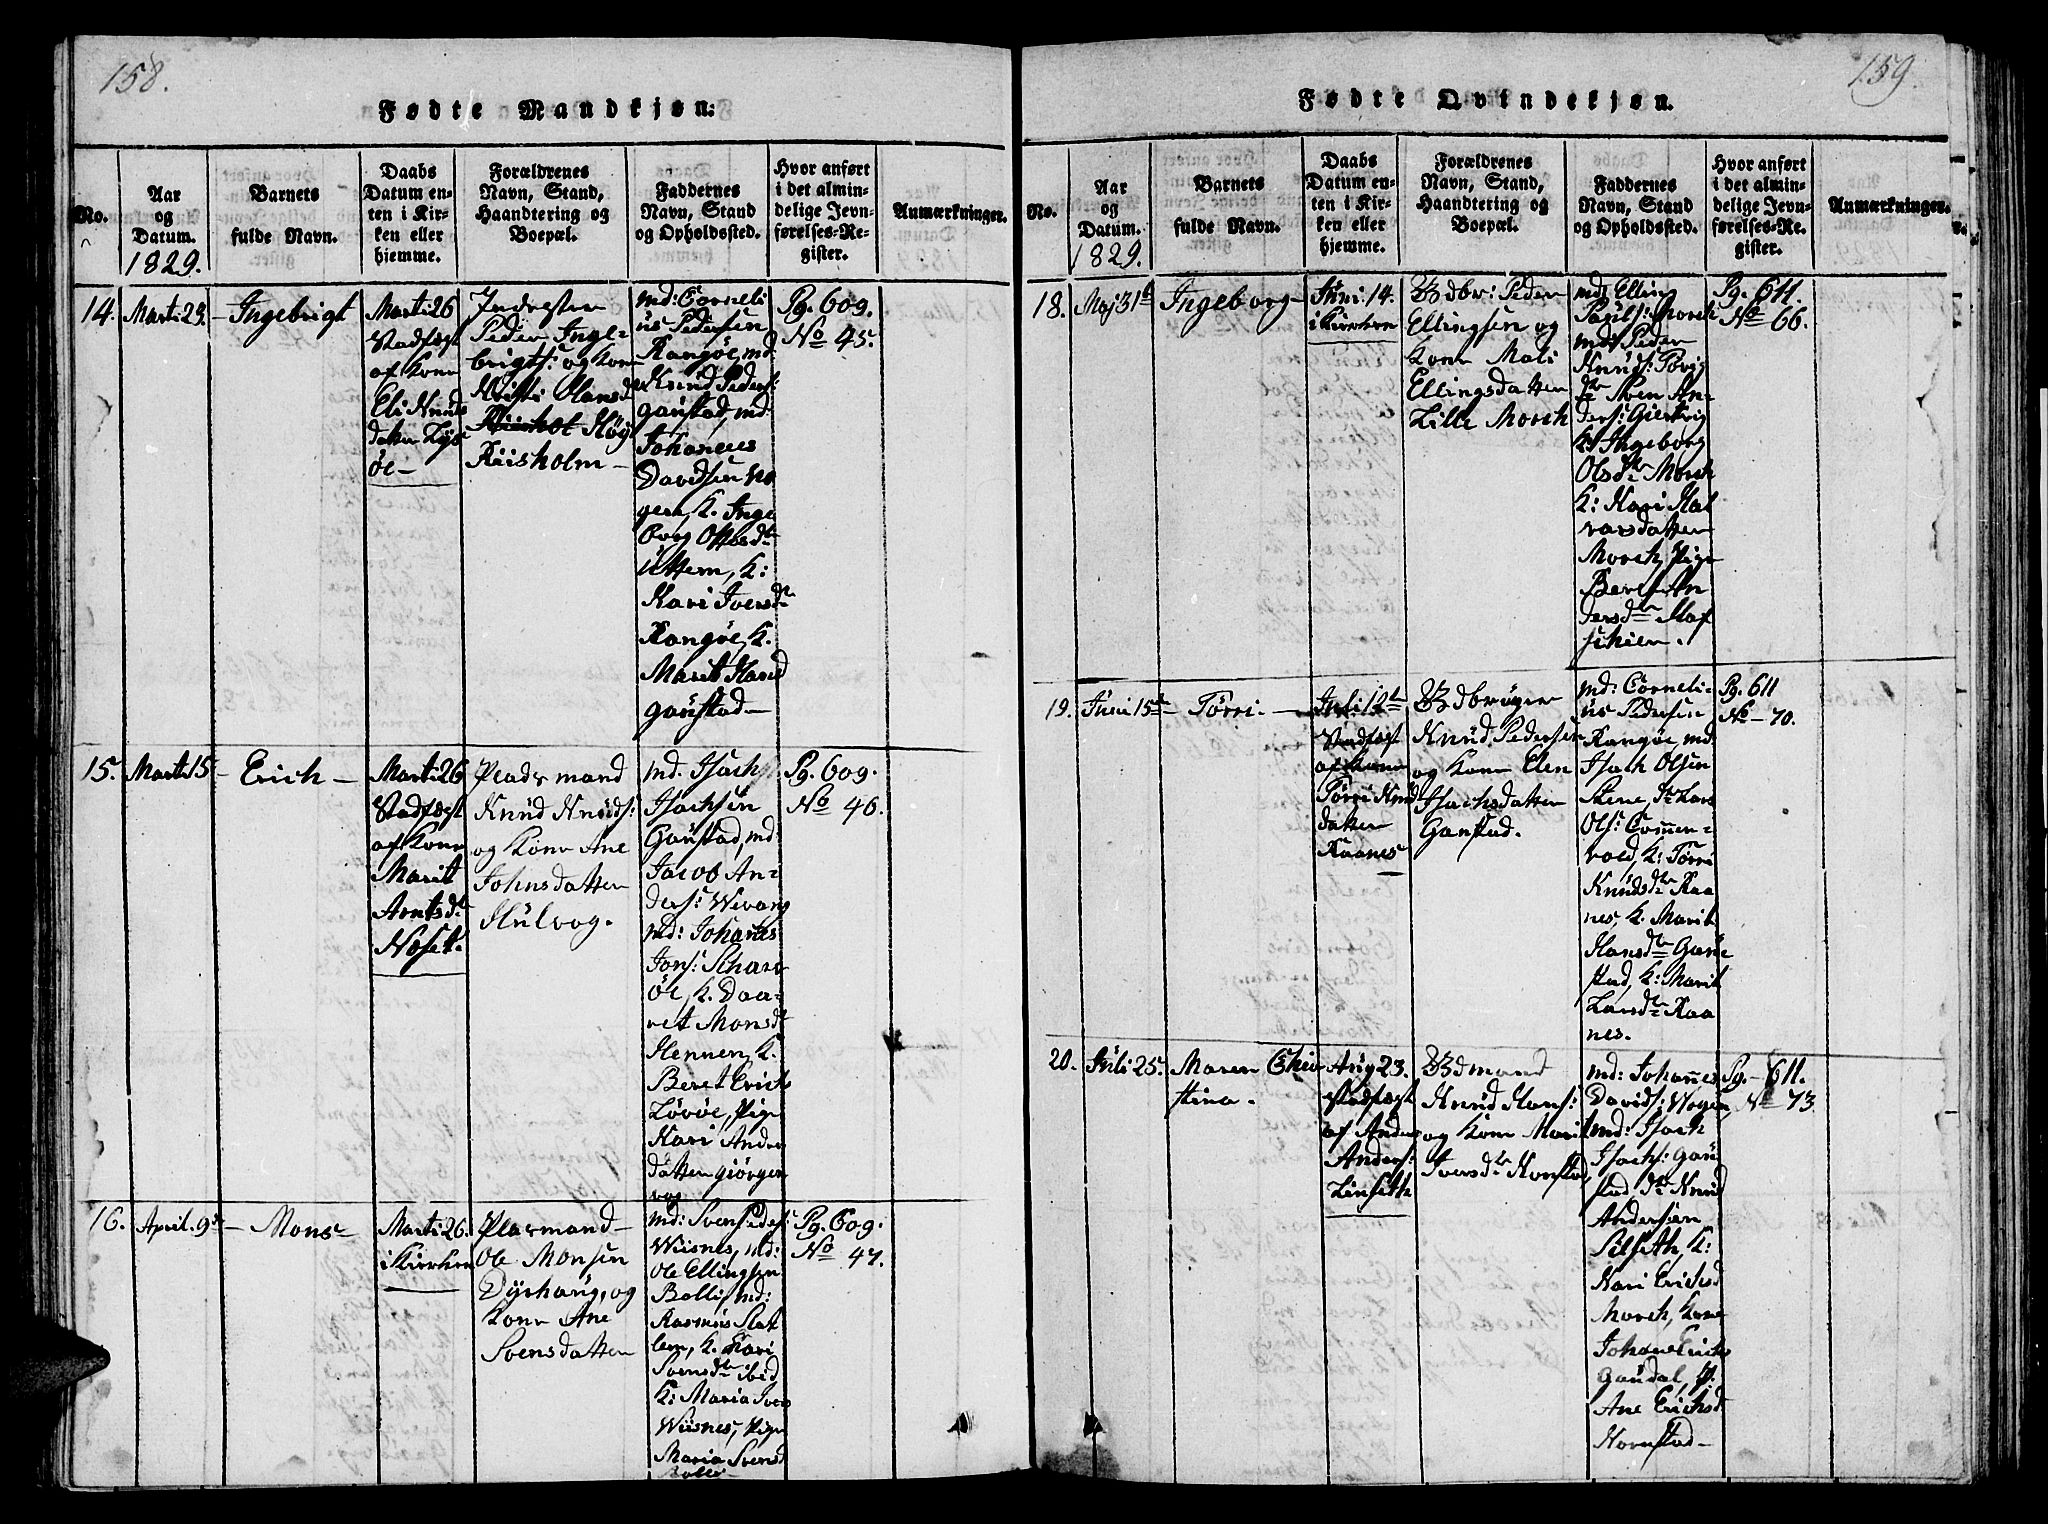 158.
Fødte Mandkjøn:
No.
Aar
og
Datum.
1829.
Barnets
fulde Navn.
Daabs
Datum en-
ten i Kir-
ken eller
hjemme.
Forældrenes
Navn, Stand,
Haandtering og
Boepæl.
Faddernes
Navn, Stand
og Opholdssted.
Hvor anført
i det almin-
delige Jevn-
førelses-Re-
gister.
Anmærkninger.
14.
Ingebrigt
Marti 26
Stadfæst
af Kone
Eli Knuds
datter
øe-
Peder Inge-
brigts: og Kone
Hansd
Riisholm-
md: Corneli
us Pedersen
Rangøe, md
Knud Peders:
gaustad, md.
Johannes
Davidsen Wo
gen, K. Inge
borg
K:
Kari Iversdtr
Rangøe, K.
Marit Hansd
gaustad-
Pg. 609.
No 45.
15.
Marti 15
- Erich -
Marti 26
Stadfæst
af Kone
Marit
Arntsdtr
Noset.
Pladsmand
Knud Knuds:
og Kone Ane
Johnsdatter
Hulvog.
md. Isach
Isachsen
Gaustad, md:
Jacob An-
ders: Wevang
md: Johannes
Jons:
øe, K. Daa-
ret Monsdt
Hennen, K.
Beret Erichs
Pige
Kari Anders
datter giørgen
vog
Pg. 609.
No 46.
16.
April. 9de
- Mons
Marti 26.
i Kirchen
Plasmand
Ole Monsen
Dyrhaug, og
Kone Ane
Svensdatter
md: Sven Peders:
Wiisnes, md:
Ole Ellingsen
Bolli, md:
Rasmus Slat
lem, K. Kari
Svensdtr ibid
K: Maria Ivers
Wiisnes, Pige
Maria Svensd
Bolli
Pg. 609.
No 47.
159.
Fødte Qvindekjøn.
No.
Aar
og
Datum.
1829.
Barnets
fulde Navn.
Daabs
Datum en-
ten i Kir-
ken eller
hjemme.
Forældrenes
Navn, Stand,
Haandtering og
Boepæl.
Faddernes
Navn, Stand
og Opholdssted.
Hvor anført
i det almin-
delige Jevn-
førelses-Re-
gister.
Anmærkninger.
18.
Maj 31te
Ingeborg
Juni 14.
i Kirchen
Gdbr: Peder
Ellingsen og
Kone Mali
Ellingsdatter
Lille Morch
md: Elling
Pauls: Morch
md: Peder
Knuds:
Sven An-
ders: Gierkvig
K: Ingeborg
Olsdtr Morch
K: Kari Hal
varsdatter
Morch, Pige
Beret An
dersdtr
Pg. 611.
No 66.
19.
Juni 15de
- Tørri. -
Juli 12te
Stadfæst
af Kone
Tørri Knud
datter
Raanes
Gdbruger
Knud Pedersen
og Kone Elen
Isachsdatter
Gaustad.
md: Corneli-
us Pedersen
Rangøe, md
Isach Olsen
Lars
Ols:
K: Tørri
Knudsdtr Raa
nes, K. Marit
Hansdtr Gau
stad, K: Marit
Larsdtr Raa
nes.
Pg. 611
No - 70.
20.
Juli 25.
Maren Chri
stina.
Aug 23.
Stadfæst
af Anders
Anders:
Linseth
Gdmand
Knud Hans:
og Kone Marit
Iversdtr Honstad
md: Johannes
Davids: Wogen,
md: Isach
Isachs: gau
stad, Knud
Andersen
Silseth, K:
Kari Erichsd
Morch, Kone
Johane Erichs
Gaudal, P.
Ane Erichsd
Honstad-
Pg. - 611.
No - 73